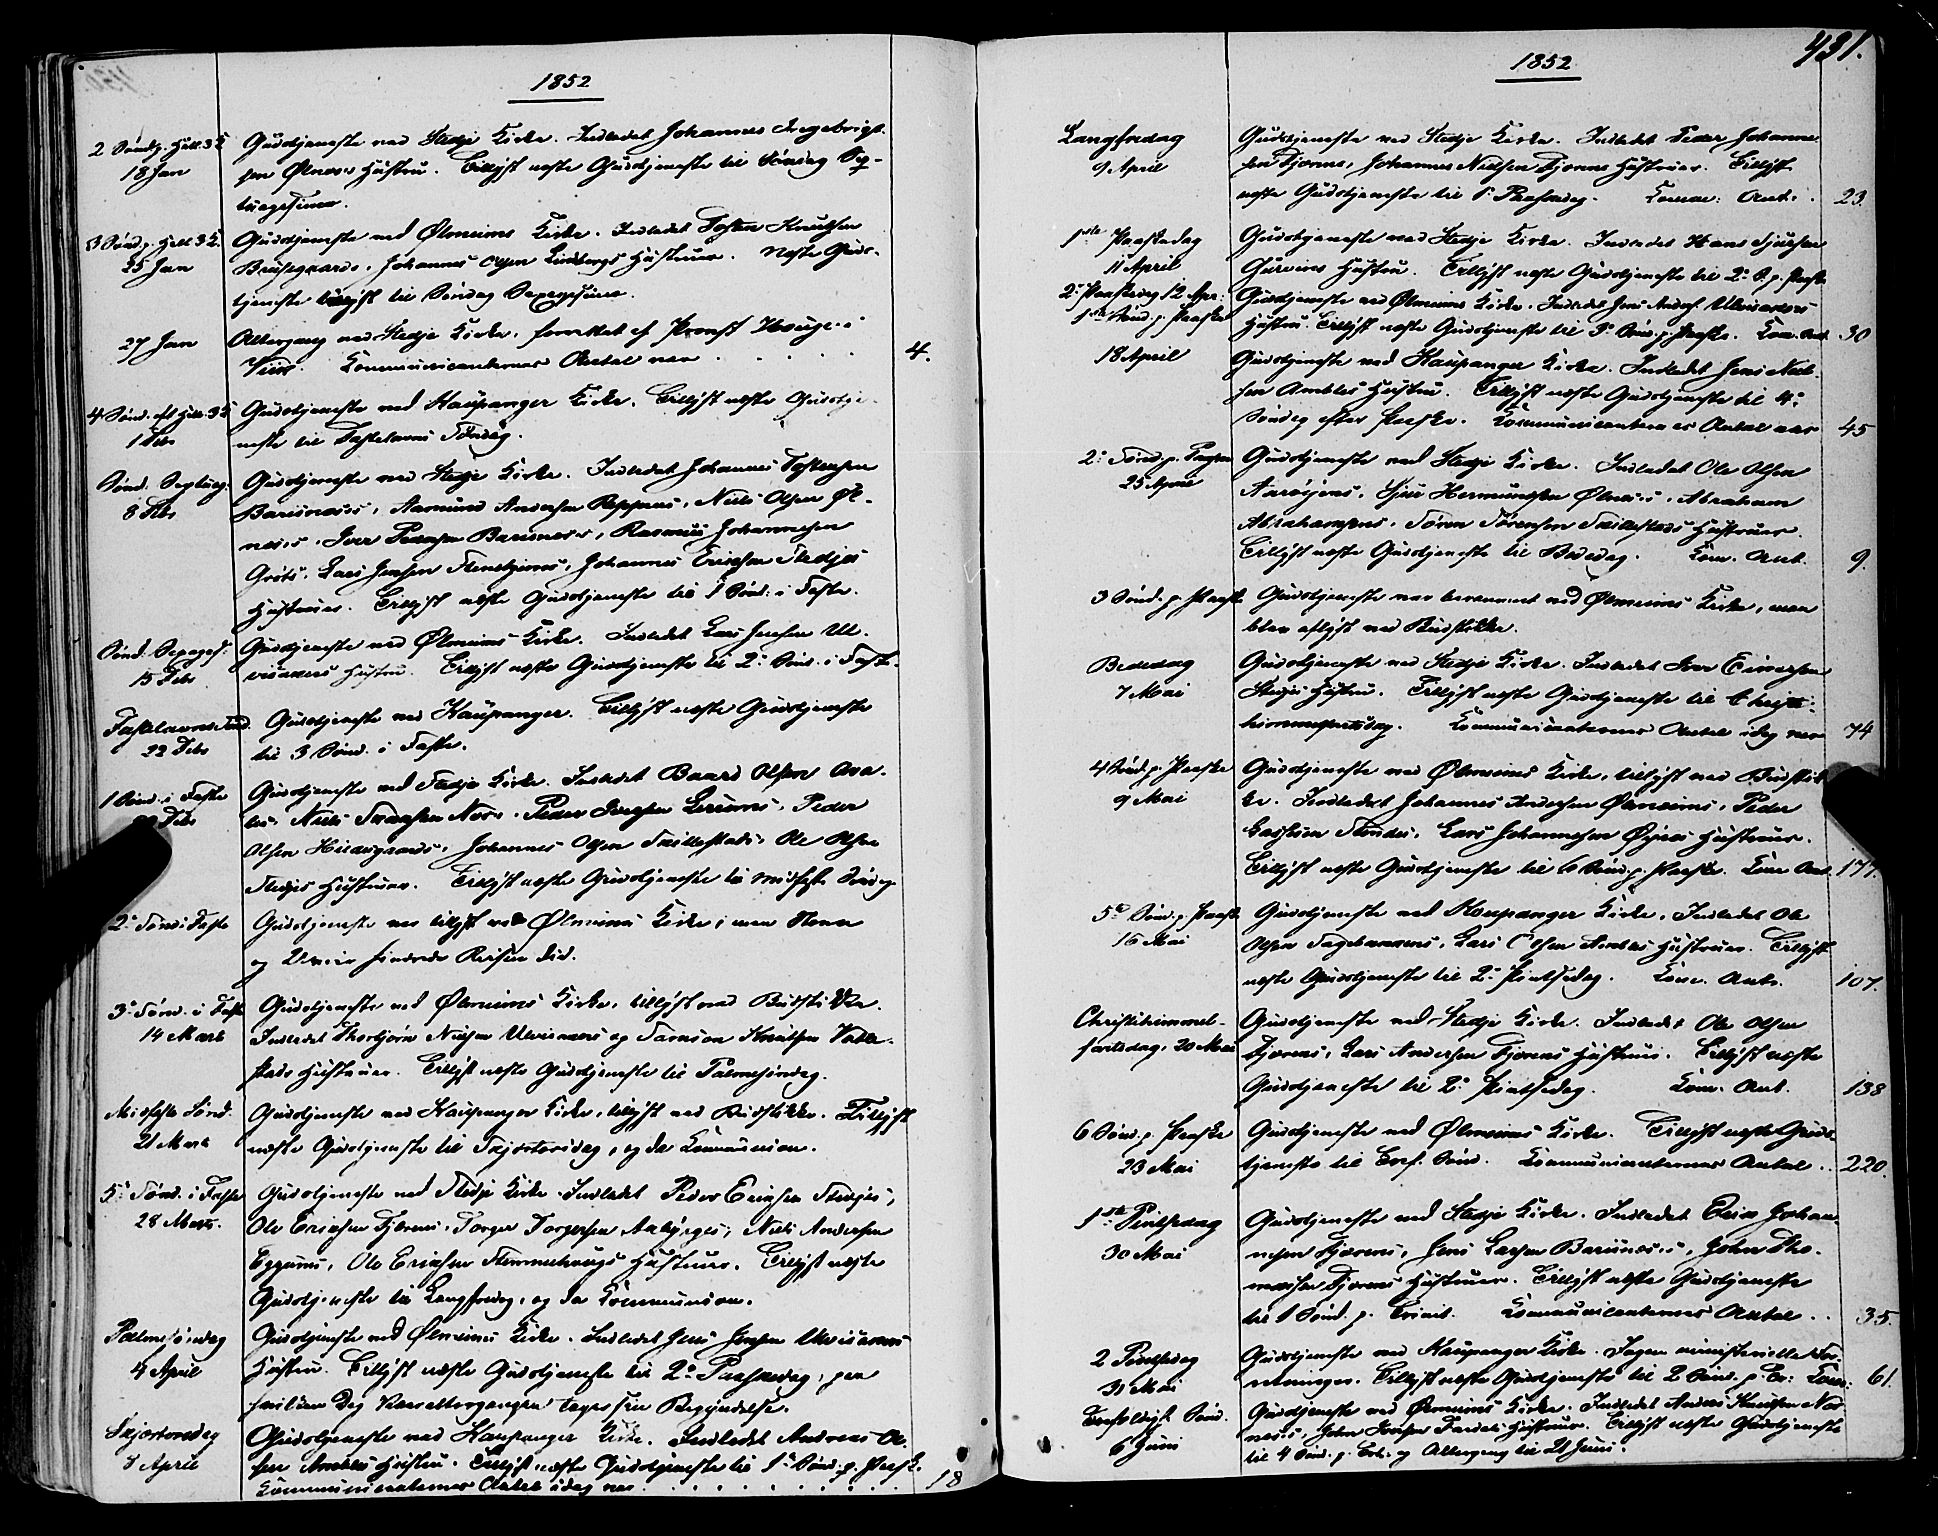 1852
2 Søndg. Hell. 3 K
18 Jan
Gudstjeneste ved Stedje Kirke. Indledet Johannes Ingebrigt-
sen Ølnæs's Hustru. Tillyst næste Gudstjeneste til Søndag Sep-
tuagesima.
3 Sønd. p. Hell. 3 K.
25 Jan
Gudstjeneste ved Ølmeims Kirke. Indledet Tosten Knutsen
Johannes Olsen Hustruer. Næste Guds-
tjeneste tillyst til Søndag Sexagesima.
27 Jan
Altergang ved Stedje Kirke, forrettet af Provst Hauge i
Viig. Kommunicanternes Antal var . . . . . 4.
4 Sønd. eft. Hell. 3 K
1 Febr
Gudstjeneste ved Kaupanger Kirke. Tillyst næste Gudstje-
neste til Fastelavns Søndag.
Sønd. Septuag.
8 Febr
Gudstjeneste ved Stedje Kirke. Indledet Johannes Tostensen
Barsnæs's, Aamund Andersen Niels Olsen Øl-
næs's, Iver Pedersen Barsnæs's, Rasmus Johannesen
Lars Jensen Johannes Erichsen Stedjes
Hustruer. Tillyst næste Gudstjeneste til 1 Sønd. i Faste.
Sønd. Sexages.
15 Febr
Gudstjeneste ved Ølmeims Kirke. Indledet Lars Jensen Ul-
visakers Hustru. Tillyst næste Gudstjeneste til 2. Sønd. i Faste.
Fastelavns Sønd.
22 Febr
Gudstjeneste ved Kaupanger. Tillyst næste Gudstjeneste
til 3 Sønd. i Faste.
1 Sønd. i Faste
Febr
Gudstjeneste ved Stedje Kirke. Indledet Baard Olsen
Niels Peder Iversen Peder
Olsen Johannes Olsen Ole Olsen
Stedjes Hustruer. Tillyst næste Gudstjeneste til Midfaste Søndag.
2. Sønd. i Faste
Gudstjeneste var tillyst ved Ølmeims Kirke; men Storm
og Uveir hindrede Reisen did.
3. Sønd. i Faste
14 Marts
Gudstjeneste ved Ølmeims Kirke, tillyst ved Budstikke.
Indledet Thorbjørn Nielsen Ulvisakers og Knutsen
Hustruer. Tillyst næste Gudstjeneste til Palmesøndag.
Midfaste Sønd.
21 Marts
Gudstjeneste ved Kaupanger Kirke, tillyst ved Budstikke. Tillyst
næste Gudstjeneste til Skjærtorsdag, og da Kommunion.
5. Sønd. i Faste
28 Marts.
Gudstjeneste ved Stedje Kirke. Indledet Peder Erichsen Stedjes,
Ole Erichsen Fjærens, Torger Torgersen Niels Andersen
Eggums, Ole Erichsen Hustruer. Tillyst næste
Gudstjeneste til Langfredag, og da Kommunion.
Palmesøndag
4 April
Gudstjeneste ved Ølmeims Kirke. Indledet Jens Jensen Ulvisakers
Hustru. Tillyst næste Gudstjeneste til 2. Paaskedag, paa
hvilken Dag Vaaraltergangen tager sin Begyndelse.
Skjærtorsdag
8 April
Gudstjeneste ved Kaupanger Kirke. Indledet Andreas Ol-
sen Ambles Hustru. Tillyst næste Gudstjeneste til 1. Sønd. p. Paaske.
Kommunicanternes Antal idag var . . . . . 18
431.
1852
Langfredag
9 April
Gudstjeneste ved Stedje Kirke. Indledet Peder Johanne-
sen Fjærens, Johannes Nielsen Fjærens Hustruer. Tillyst
næste Gudstjeneste til 1. Paaskedag. Komm: Ant: . 23.
1ste Paaskedag
11 April
Gudstjeneste ved Stedje Kirke. Indledet Hans Sjursen
Hustru. Tillyst næste Gudstjeneste til 2. S. p. Paaske
2. Paaskedag 12 Apr:
Gudstjeneste ved Ølmeims Kirke. Indledet Jens Ulvisakers
Hustru. Tillyst næste Gudstjeneste til 3. Sønd. p. Paaske. Kom. Ant. 30
1ste Sønd. p. Paaske
18 April
Gudstjeneste ved Kaupanger Kirke. Indledet Jens Niel-
sen Ambles Hustru. Tillyst næste Gudstjeneste til 4.
Søndag efter Paaske. Kommunicanternes Antal var 45
2. Sønd. p. Paaske
25 April
Gudstjeneste ved Stedje Kirke. Indledet Ole Olsen
Aarøyens, Sjur Hermundsen Ølnæs's, Abraham
Abrahamsens, Søren Sørensen Hustruer.
Tillyst næste Gudstjeneste til Bededag. Kom. Ant. 9.
3 Sønd. p. Paaske
Gudstjeneste var berammet ved Ølmeims Kirke, men
blev aflyst ved Budstikke.
Bededag
7 Mai
Gudstjeneste ved Stedje Kirke. Indledet Iver Einersen
Stedjes Hustru. Tillyst næste Gudstjeneste til Christi-
himmelfartsdag. Kommunicanternes Antal idag var 74
4 Sønd. p. Paaske
9 Mai
Gudstjeneste ved Ølmeims Kirke, tillyst ved Budstik-
ke. Indledet Johannes Andersen Ølmeims, Peder
Lars Johannesen Hustruer.
Tillyst næste Gudstjeneste til 6 Sønd. p. Paaske. Kom. Ant. 177.
5te Sønd. p. Paaske
16 Mai
Gudstjeneste ved Kaupanger Kirke. Indledet Ole
Olsen Lars Olsen Ambles Hustruer. Tillyst
næste Gudstjeneste til 2. Pintsedag. Kom. Ant. 107.
Christihimmel-
fartsdag, 20 Mai
Gudstjeneste ved Stedje Kirke. Indledet Ole Olsen
Fjærens, Lars Andersen Fjærens Hustruer. Tillyst næste
Gudstjeneste til 2. Pintsedag. Kom. Ant. 138
6 Sønd. p. Paaske
23 Mai
Gudstjeneste ved Ølmeims Kirke. Tillyst næste Guds-
tjeneste til Tref. Sønd. Kommunicanternes Antal . . 220.
1ste Pintsedag
30 Mai
Gudstjeneste ved Stedje Kirke. Indledet Erik Johan-
nesen Fjærens, Jens Larsen Barsnæs's, John Tho-
masen Fjærens Hustruer. Tillyst næste Gudstjeneste
til 1 Sønd. p. Trinit. Kommunicanternes Antal . . 35.
2 Pintsedag
31 Mai
Gudstjeneste ved Kaupanger Kirke. Ingen ministerielle For-
retninger. Tillyst næste Gudstjeneste til 2 Sønd. p. Tr: Kom: 61.
Trefoldigh. Sønd.
6 Juni
Gudstjeneste ved Ølmeims Kirke. Indledet Anders Knutsen Nor-
næs's, John Hustruer. Tillyst næste Gudstjeneste
til 4 Sønd. p. Tr. og Altergang til 21 Juni.